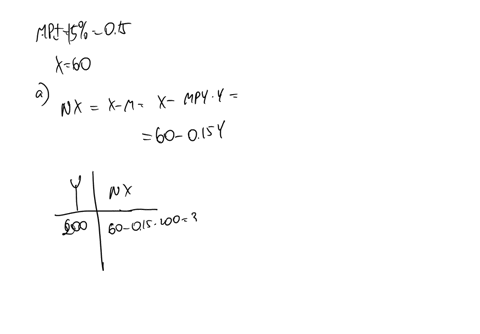 MPI=15%=0.15
X=60
a) NX = X-M = X- MPI·Y =
= 60-0.15Y
Y NX
60-0.15·200=3